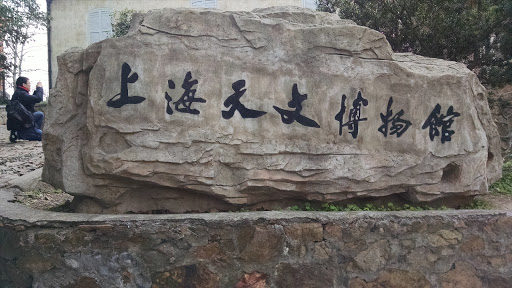 上海天文博物馆